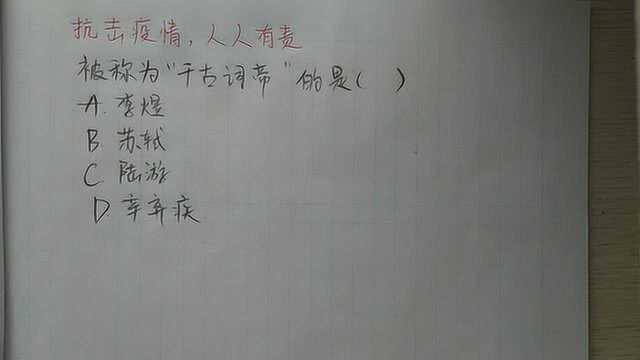 抗击疫情,人人有责
被称为“千古词帝”的是( )
A. 李煜
B. 苏轼
C. 陆游
D 辛弃疾